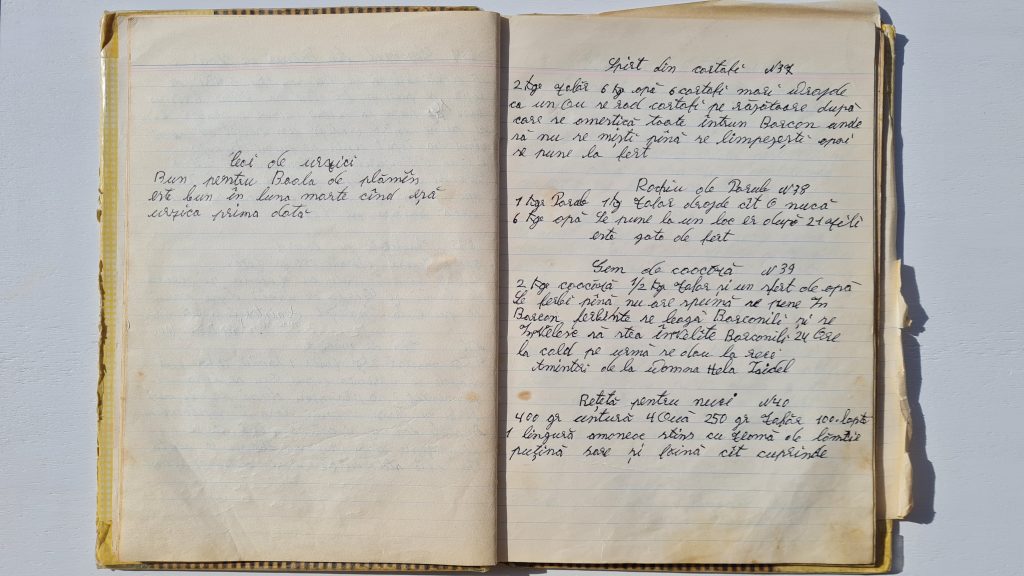 Ceci de urzici
Bun pentru Boala de plămîn
este bun în luna marte cînd iesă
urzica prima dată
Spirt din cartofi N37
2 kge zahăr 6 kg apă 6 cartofi mari drojde
ca un Ou se rad cartofi pe răzătoare după
care se amestică toate întrun Borcon unde
să nu se miști pînă se limpezesti apoi
se pune la fert
Rachiu de Porumb N38
1 kgr 1 kg zahăr drojde cît O nucă
6 kge apă Se pune la un loc er după 21 zili
este gata de fert
Gem de coacăză N39
2 kge coacăză 1/2 kge zahăr și un sfert de apă
Se ferbe pînă nu are spumă se pune În
Borcon ferbinte se leagă Borconili și se
Învelesc să stea învelite Borconili 24 Ore
la cald pe urmă se dau la reci
Amintiri de la Domna Hela
Rețetă pentru nuci N40
400 gr untură 4 Ouă 250 gr zahăr 100 lapte
1 lingură amoneac stins cu zeamă de lămîie
puțină sare și făină cît cuprinde